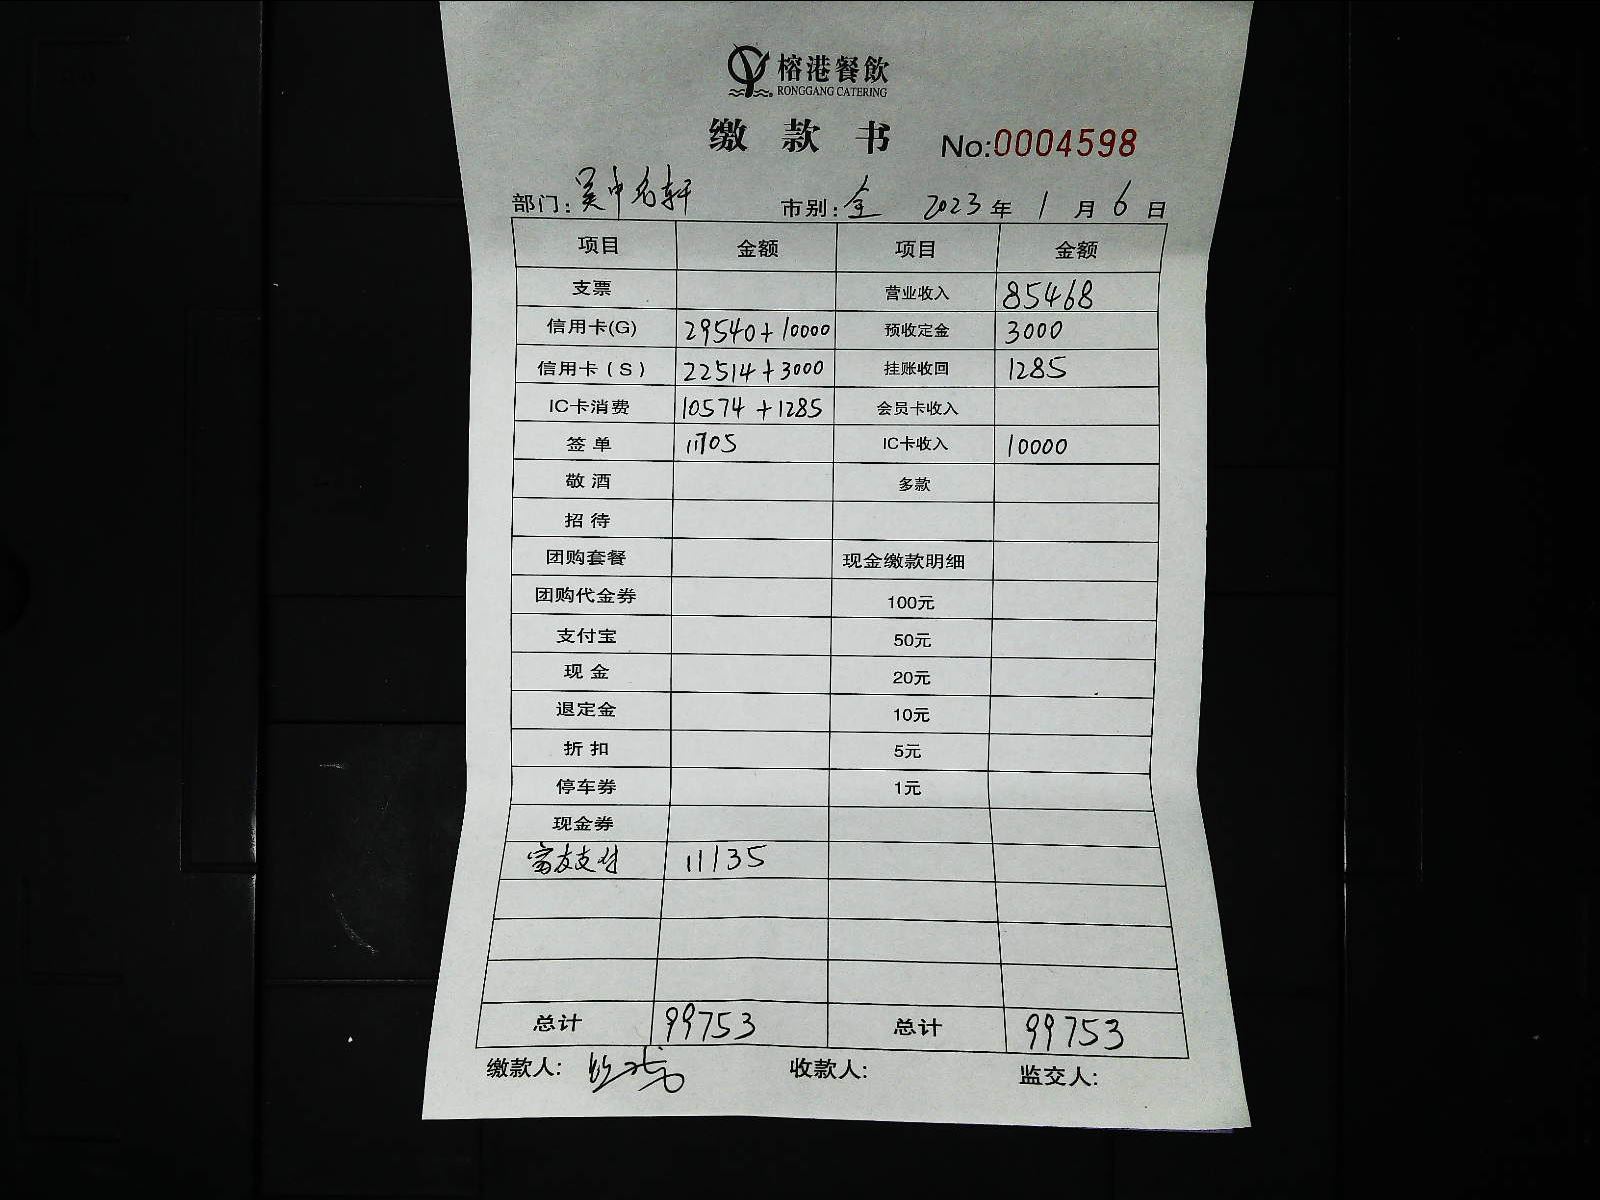 榕港餐飲
RONGGANG CATERING
缴款书 No:0004598
部门: 吴中名轩 市别: 全 2023年1月6日
项目 金额 项目 金额
支票 营业收入 85468
信用卡(G) 29540+10000 预收定金 3000
信用卡(S) 22514+3000 挂账收回 1285
IC卡消费 10574+1285 会员卡收入
签单 11705 IC卡收入 10000
敬酒 多款
招待
团购套餐 现金缴款明细
团购代金券 100元
支付宝 50元
现金 20元
退定金 10元
折扣 5元
停车券 1元
现金券
富友支付 11135
总计 99753 总计 99753
缴款人: 收款人: 监交人: